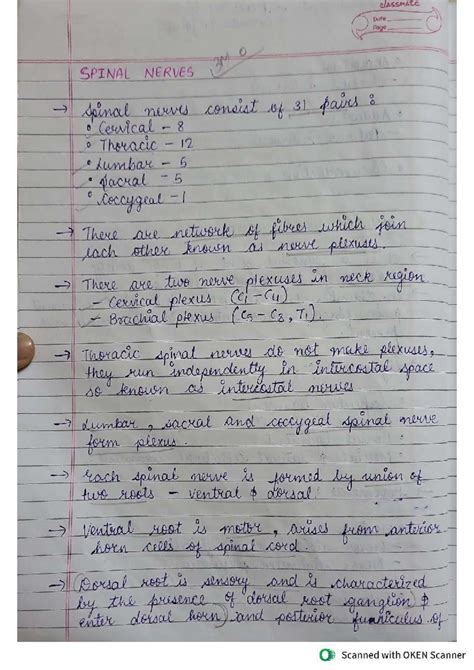 classmate
Date
Page
SPINAL NERVES
→ Spinal nerves consist of 31 pairs :
• Cervical - 8
• Thoracic - 12
• Lumbar - 5
• Sacral - 5
• Coccygeal - 1
→ There are network of fibres which join
each other known as nerve plexuses.
→ There are two nerve plexuses in neck region
- Cervical plexus (C1 - C4)
- Brachial plexus (C5 - C8, T1).
→ Thoracic spinal nerves do not make plexuses,
they run independently in intercostal space
so known as intercostal nerves
→ Lumbar, sacral and coccygeal spinal nerve
form plexus.
→ Each spinal nerve is formed by union of
two roots - ventral & dorsal.
→ Ventral root is motor, arises from anterior
horn cells of spinal cord.
→ (Dorsal root is sensory and is characterized
by the presence of dorsal root ganglion &
enter dorsal horn) and posterior funiculus of
Scanned with OKEN Scanner